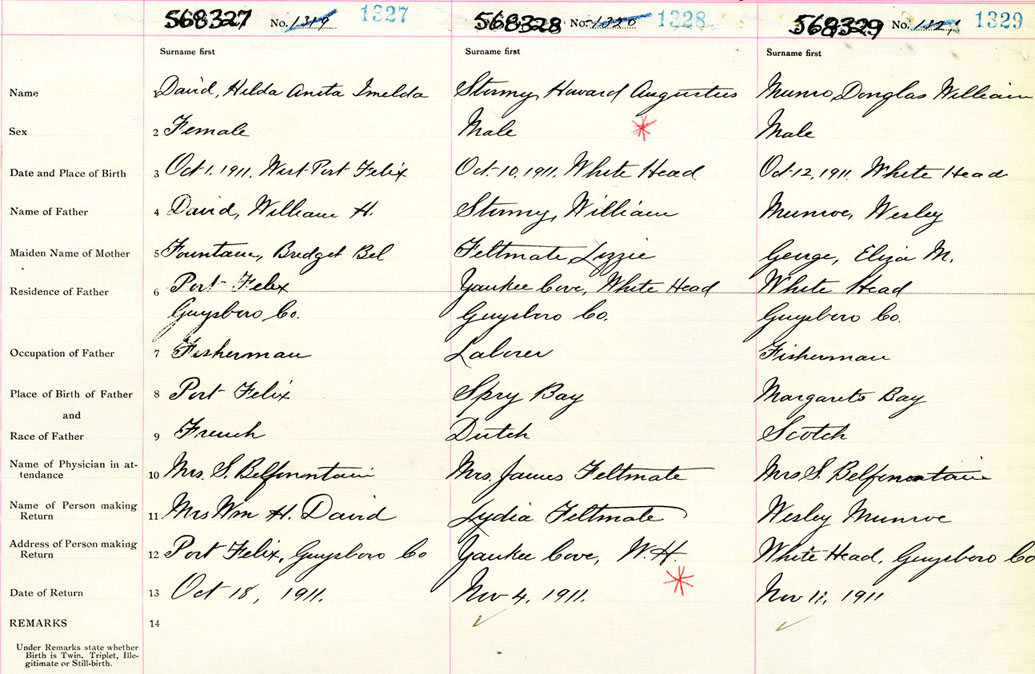 568327 No. 1319 1327 568328 No. 1320 1328 568329 No. 1321 1329
Surname first Surname first Surname first
Name 1 David, Hilda Anita Imelda Sturmy, Howard Augustus Munro, Douglas William
Sex 2 Female Male Male
Date and Place of Birth 3 Oct 1, 1911, West Port Felix Oct-10, 1911, White Head Oct-12, 1911, White Head
Name of Father 4 David, William H. Sturmy, William Munroe, Wesley
Maiden Name of Mother 5 Fountain, Bridget Bel Feltmate, Lizzie George, Eliza M.
Residence of Father 6 Port Felix Yankee Cove, White Head White Head
Guysboro Co. Guysboro Co. Guysboro Co.
Occupation of Father 7 Fisherman Laborer Fisherman
Place of Birth of Father 8 Port Felix Spry Bay Margarets Bay
and
Race of Father 9 French Dutch Scotch
Name of Physician in at-
tendance 10 Mrs. S. Belfountain Mrs. James Feltmate Mrs S. Belfountain
Name of Person making
Return 11 Mrs Wm H. David Lydia Feltmate Wesley Munroe
Address of Person making
Return 12 Port Felix, Guysboro Co Yankee Cove, W. H White Head, Guysboro Co
Date of Return 13 Oct 18, 1911. Nov 4, 1911. Nov 11, 1911
REMARKS 14
Under Remarks state whether
Birth is Twin, Triplet, Ille-
gitimate or Still-birth.